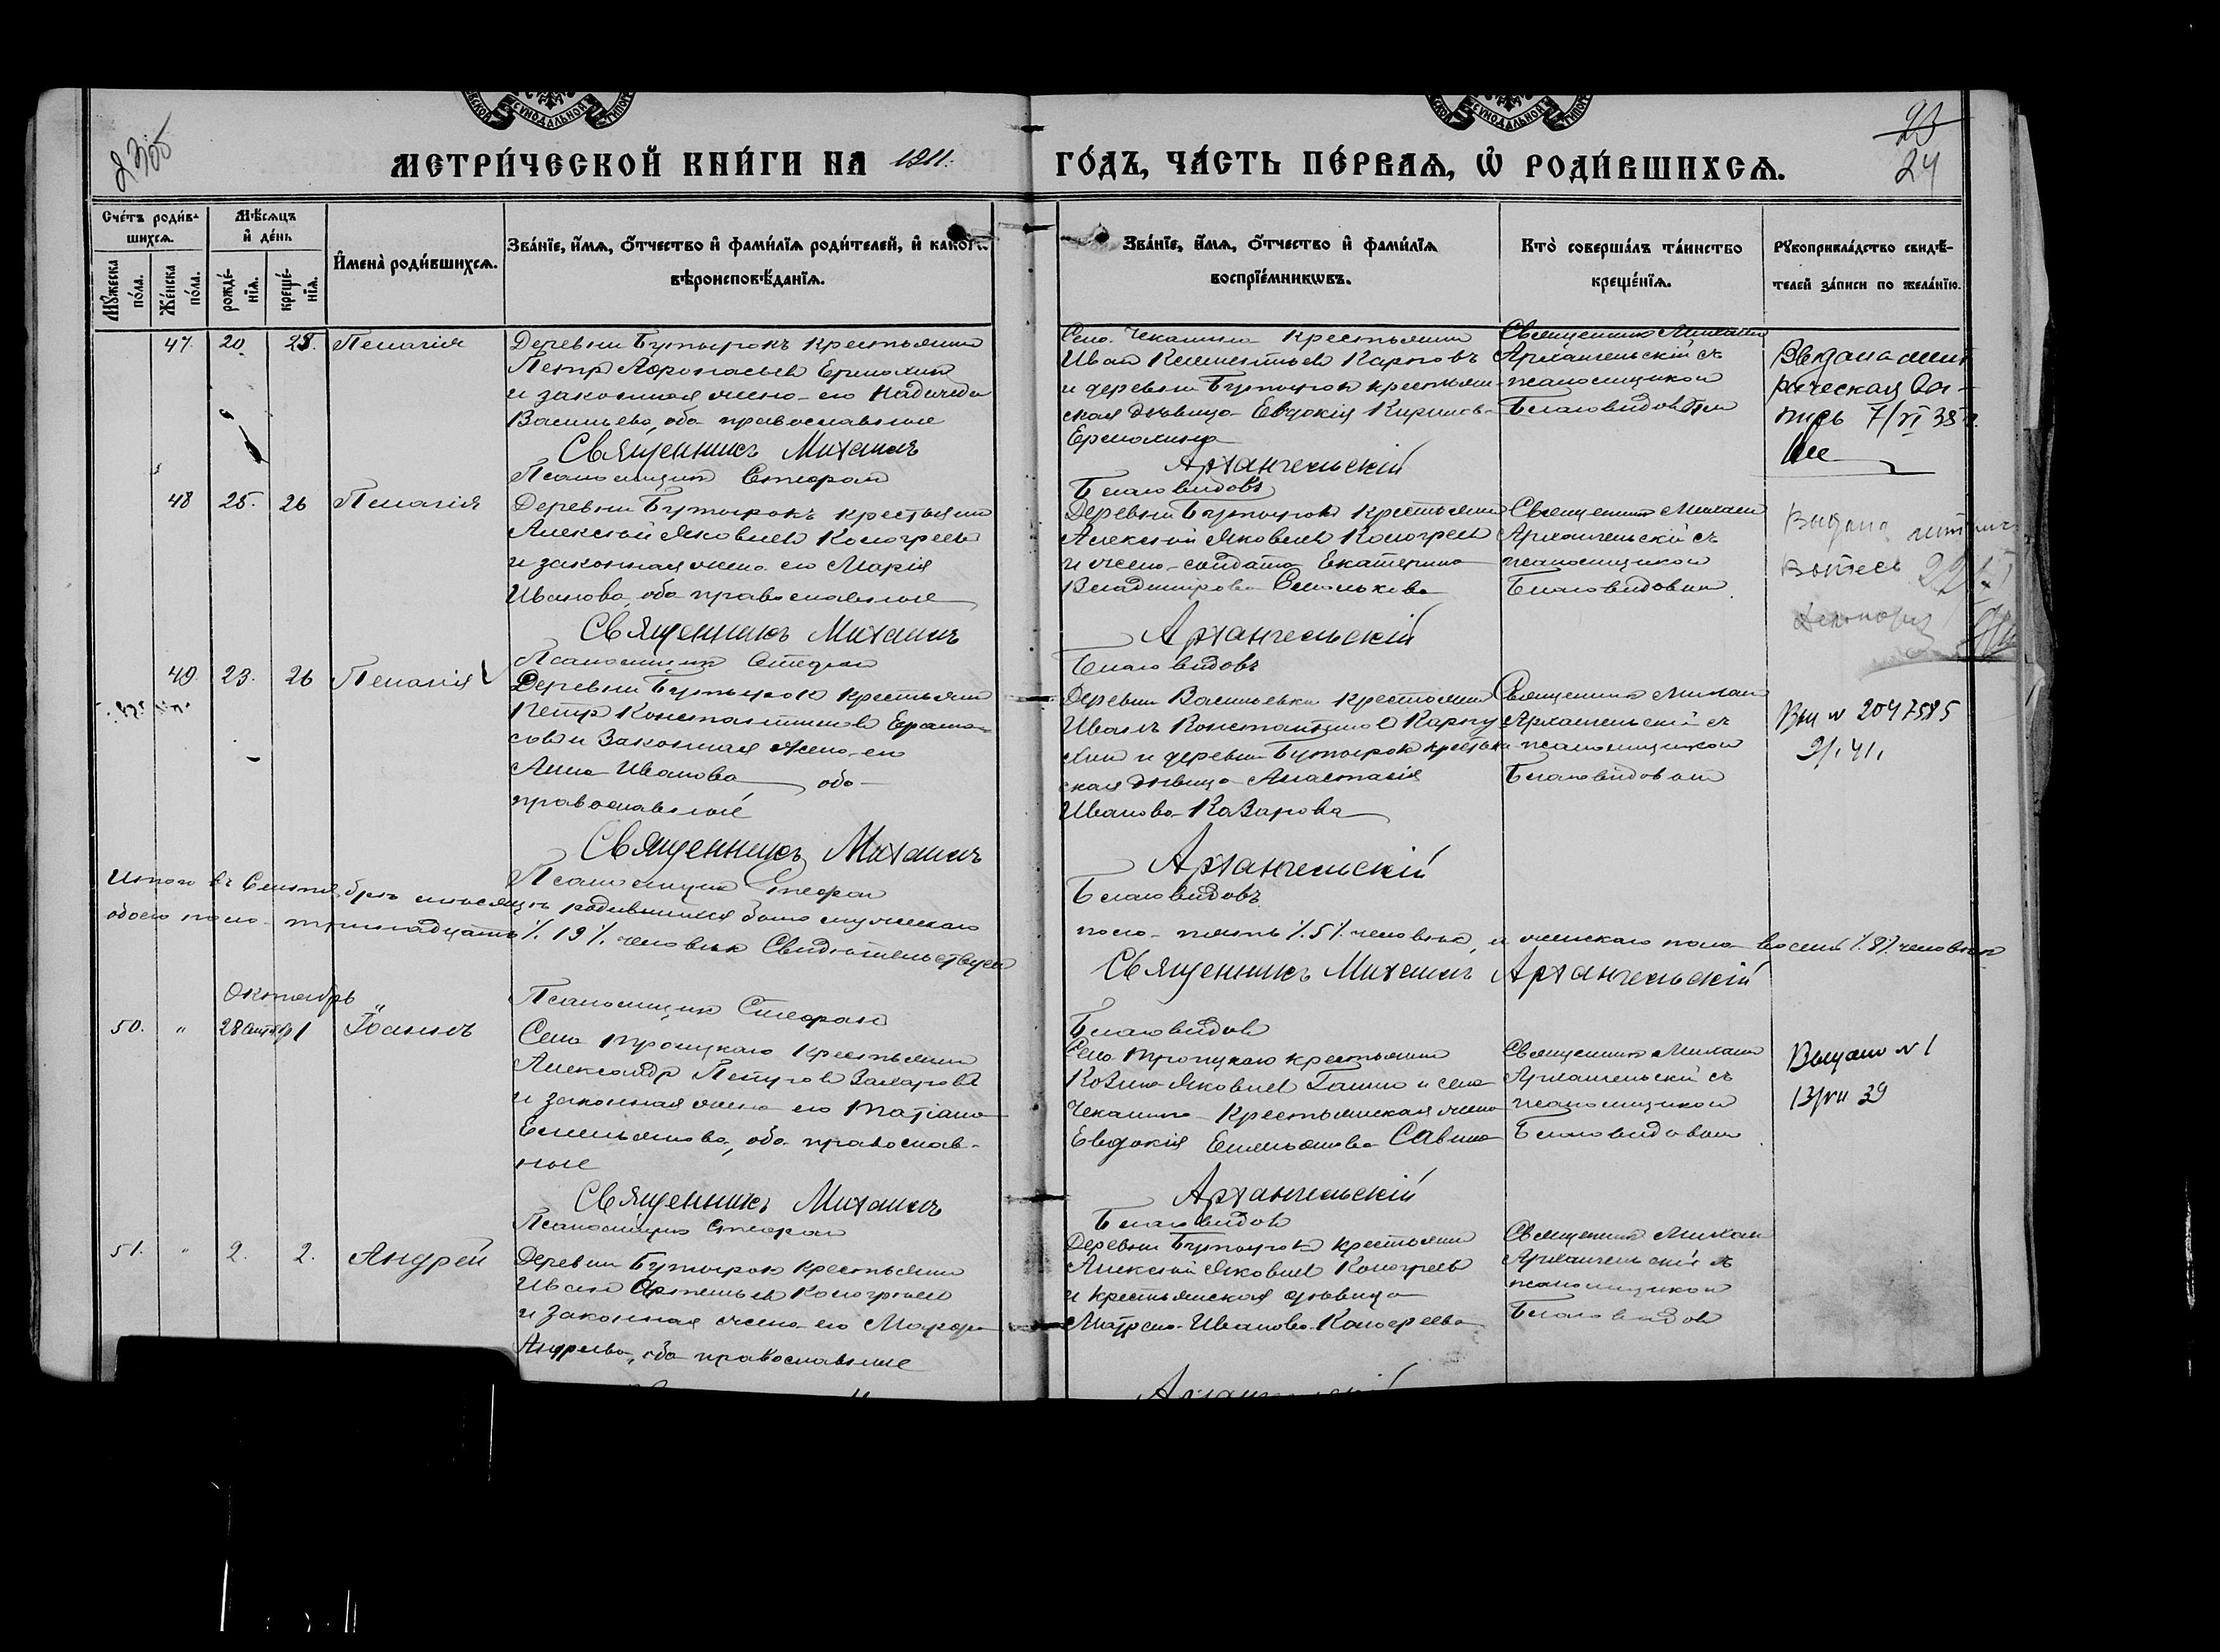 СѴНОДАЛЬНОЙ
СѴНОДАЛЬНОЙ
23
24
МЕТРИ́ЧЕСКОЙ КНИ́ГИ НА 1911.
ГО́ДЪ, ЧА́СТЬ ПЕ́РВАѦ, Ѡ҆ РОДИ́ВШИХСѦ.
Сче́тъ роди́в-
шихсѧ.
Мꙋ́жеска по́ла.
Же́нска по́ла.
Мѣ́сѧцъ
и҆ де́нь
рожде́-
нїѧ.
креще́-
нїѧ.
И҆мена̀ роди́вшихсѧ.
Зва́нїе, и҆́мѧ, ѻ҆́тчество и҆ фами́лїѧ роди́телей, и҆ како́гѡ
вѣроисповѣ́данїѧ.
Зва́нїе, и҆́мѧ, ѻ҆́тчество и҆ фами́лїѧ
воспрїе́мникѡвъ.
Кто̀ соверша́лъ та́инство
креще́нїѧ.
Рꙋкоприкла́дство свидѣ́-
телей за́писи по жела́нїю.
47. 20. 25. Пелагія
Деревни Бутырокъ крестьянинъ
Петръ Афонасьевъ Ермохинъ
и законная жена его Надежда
Васильева, оба православные
Священникъ Михаилъ
Псаломщикъ Стефанъ
Села Чекалина крестьянинъ
Иванъ Климентьевъ Карповъ
и деревни Бутырокъ крестьян-
ская дѣвица Евдокія
Ермохина
Архангельскій
Благовидовъ
Священникъ Михаилъ
Архангельскій съ
псаломщикомъ
Благовидовымъ
Выдана мет
рическая вы-
пись 7/VI 35 г.
48 25. 26 Пелагія
Деревни Бутырокъ крестьянинъ
Алексѣй Яковлевъ Кологреевъ
и законная жена его Марія
Иванова, оба православные
Священникъ Михаилъ
Псаломщикъ Стефанъ
Деревни Бутырокъ крестьянинъ
Алексѣй Яковлевъ Кологреевъ
и жена солдата Екатерина
Владимірова
Архангельскій
Благовидовъ
Священникъ Михаилъ
Архангельскій съ
псаломщикомъ
Благовидовымъ
Выдана
49. 23. 26 Пелагія
Деревни Бутырокъ крестьянинъ
Петръ Константиновъ
и законная жена его
Анна Иванова оба
православные
Священникъ Михаилъ
Псаломщикъ Стефанъ
Деревни Васильевки крестьянинъ
Иванъ Константиновъ Карпу
хинъ и деревни Бутырокъ крестьян
ская дѣвица Анастасія
Иванова Казарова
Архангельскій
Благовидовъ
Священникъ Михаилъ
Архангельскій съ
псаломщикомъ
Благовидовымъ
Выд № 2047585
2/I 41.
Итого въ Сентябрѣ мѣсяцѣ родившихся было мужескаго
пола пять %5% человѣкъ, и женскаго пола восемь %8% человѣкъ
обоего пола тринадцать %13% человѣкъ Свидѣтельствуемъ
Священникъ Михаилъ Архангельскій
Псаломщикъ Стефанъ
Благовидовъ
Октябрь
50. " 28 Сентября 1 Іоаннъ
Села Троицкаго крестьянинъ
Александръ Петровъ Захаровъ
и законная жена его Татіана
Емельянова, оба православ-
ные
Священникъ Михаилъ
Псаломщикъ Стефанъ
Села Троицкаго крестьянинъ
Козма Яковлевъ и села
Чекалина крестьянская жена
Евдокія Емельянова Савина
Архангельскій
Благовидовъ
Священникъ Михаилъ
Архангельскій съ
псаломщикомъ
Благовидовымъ
Выдано № 1
13/VII 39
51. " 2. 2. Андрей
Деревни Бутырокъ крестьянинъ
Иванъ Артемьевъ Кологреевъ
и законная жена его Марфа
Андреева, оба православные
Деревни Бутырокъ крестьянинъ
Алексѣй Яковлевъ Кологреевъ
и крестьянская дѣвица
Матрена Иванова Кологреева
Архангельскій
Священникъ Михаилъ
Архангельскій съ
псаломщикомъ
Благовидовъ